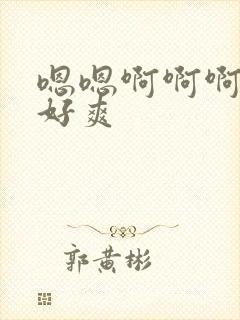 嗯嗯啊啊啊
好爽
郭黄彬